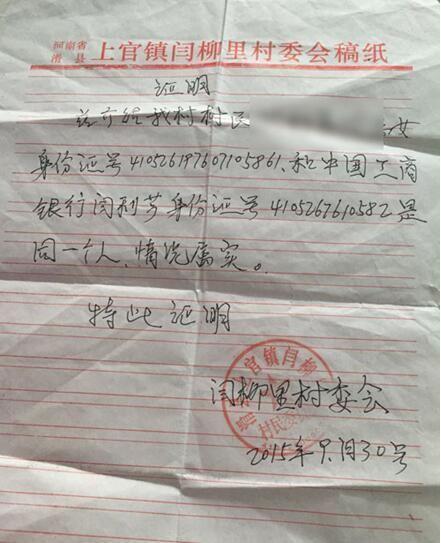 河南省
滑县 上官镇闫柳里村委会稿纸
证明
兹介绍我村村民 女
身份证号410526197607105861、和中国工商
银行闫利芳身份证号410526761058 2是
同一个人、情况属实。
特此证明
官镇闫柳
村民委
闫柳里村委会
2015年9月30号